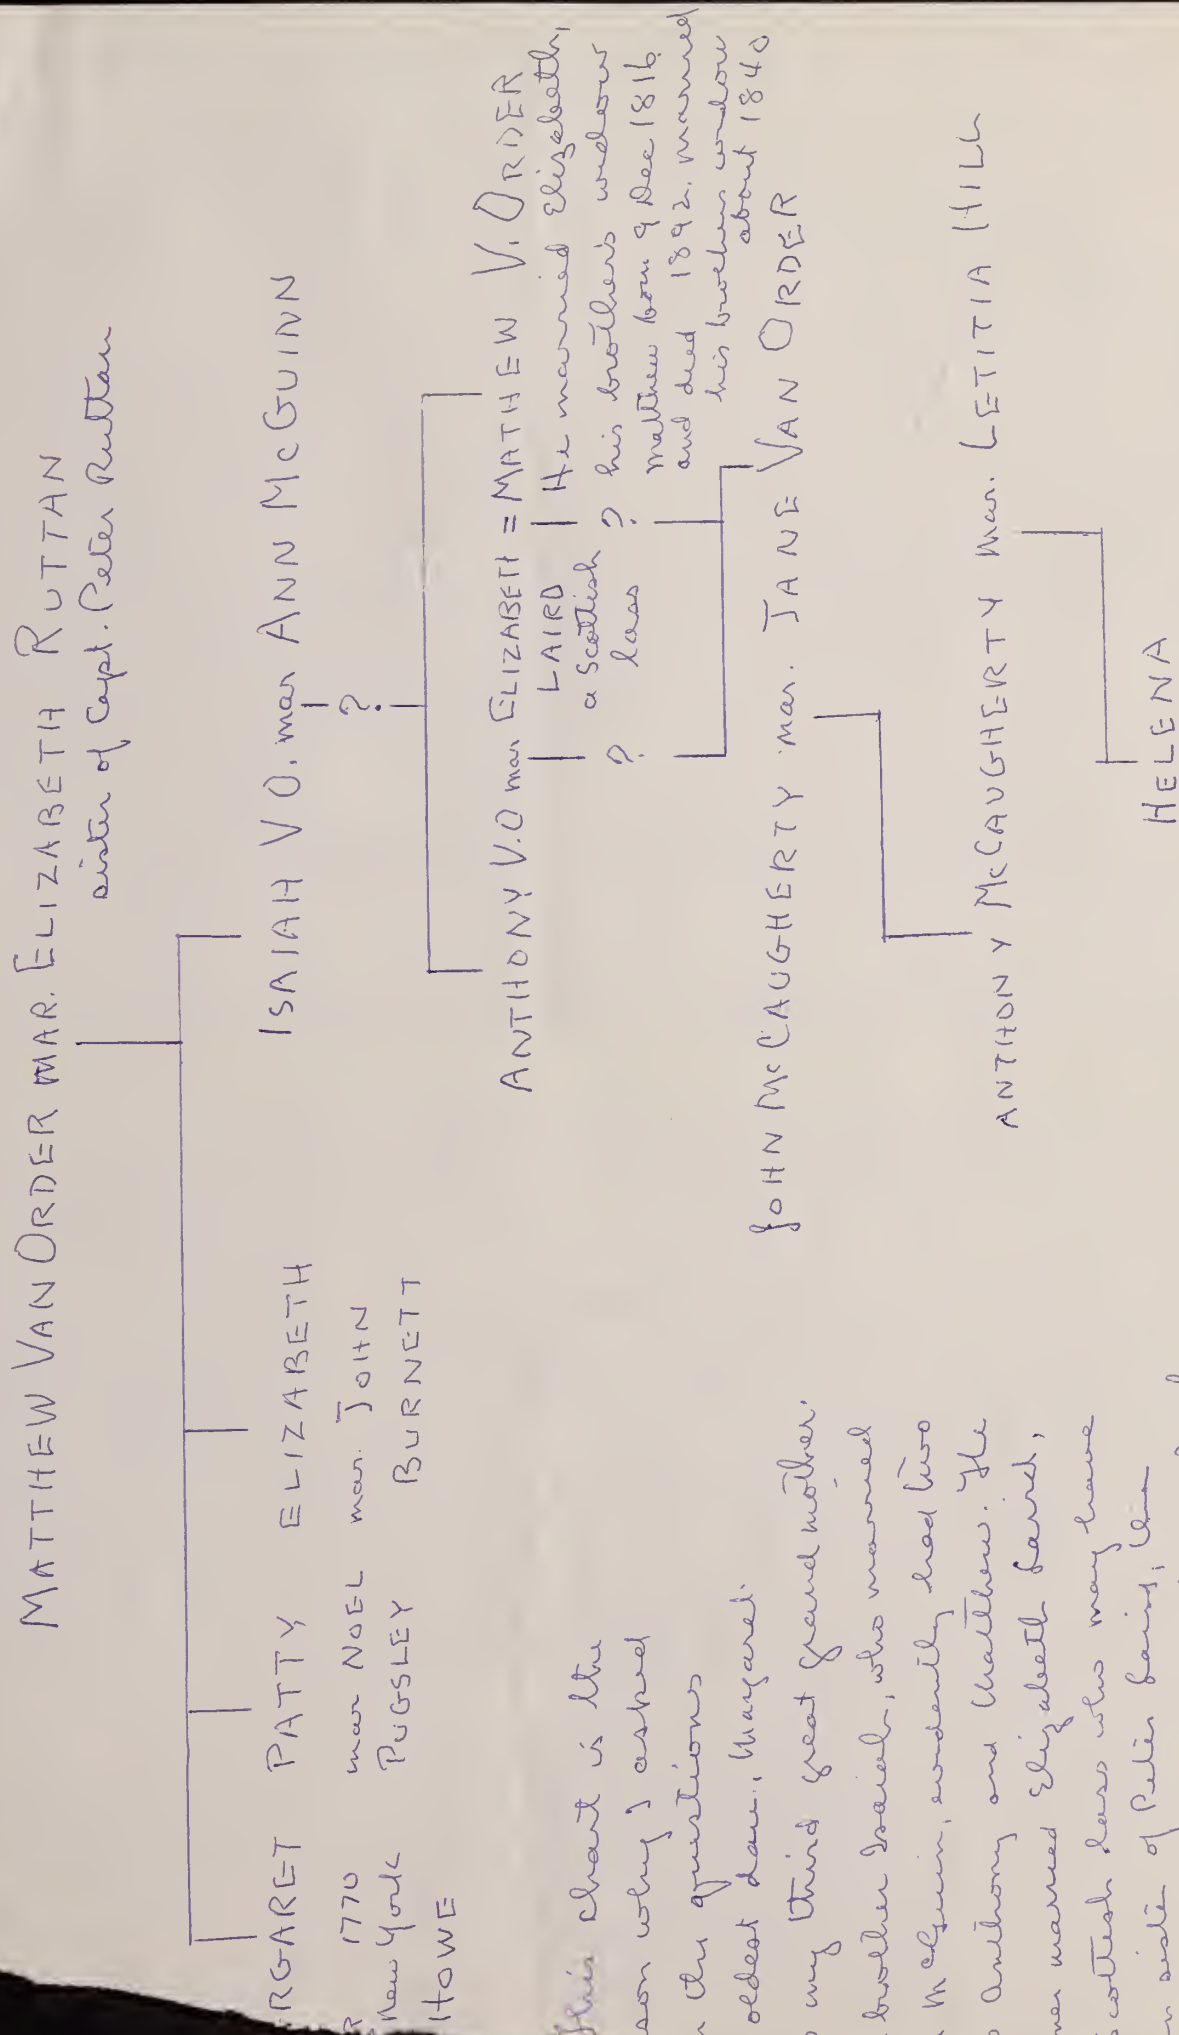 MATTHEW VAN ORDER MAR. ELIZABETH RUTTAN
sister of Capt. Peter Ruttan
RGARET PATTY ELIZABETH ISAIAH V O. mar ANN McGUINN
R 1770 mar NOEL mar. JOHN
New York PUGSLEY BURNETT
HOWE
?
ANTHONY V.O mar ELIZABETH = MATHEW V. ORDER
LAIRD
a Scottish
lass
He married Elizabeth,
his brother's widow
Matthew born 9 Dec 1816
and died 1892. married
his brothers widow
about 1840
? ?
JOHN McCAUGHERTY mar. JANE VAN ORDER
ANTHONY McCAUGHERTY mar. LETITIA HILL
HELENA
This chart is the
son why I asked
the questions
oldest dau., Margaret.
my third great grandmother.
brother Isaiah, who married
McGuin, evidently had two
Anthony and Matthew. The
mer married Elizabeth Laird,
scottish lass who may have
sister of Peter Laird,